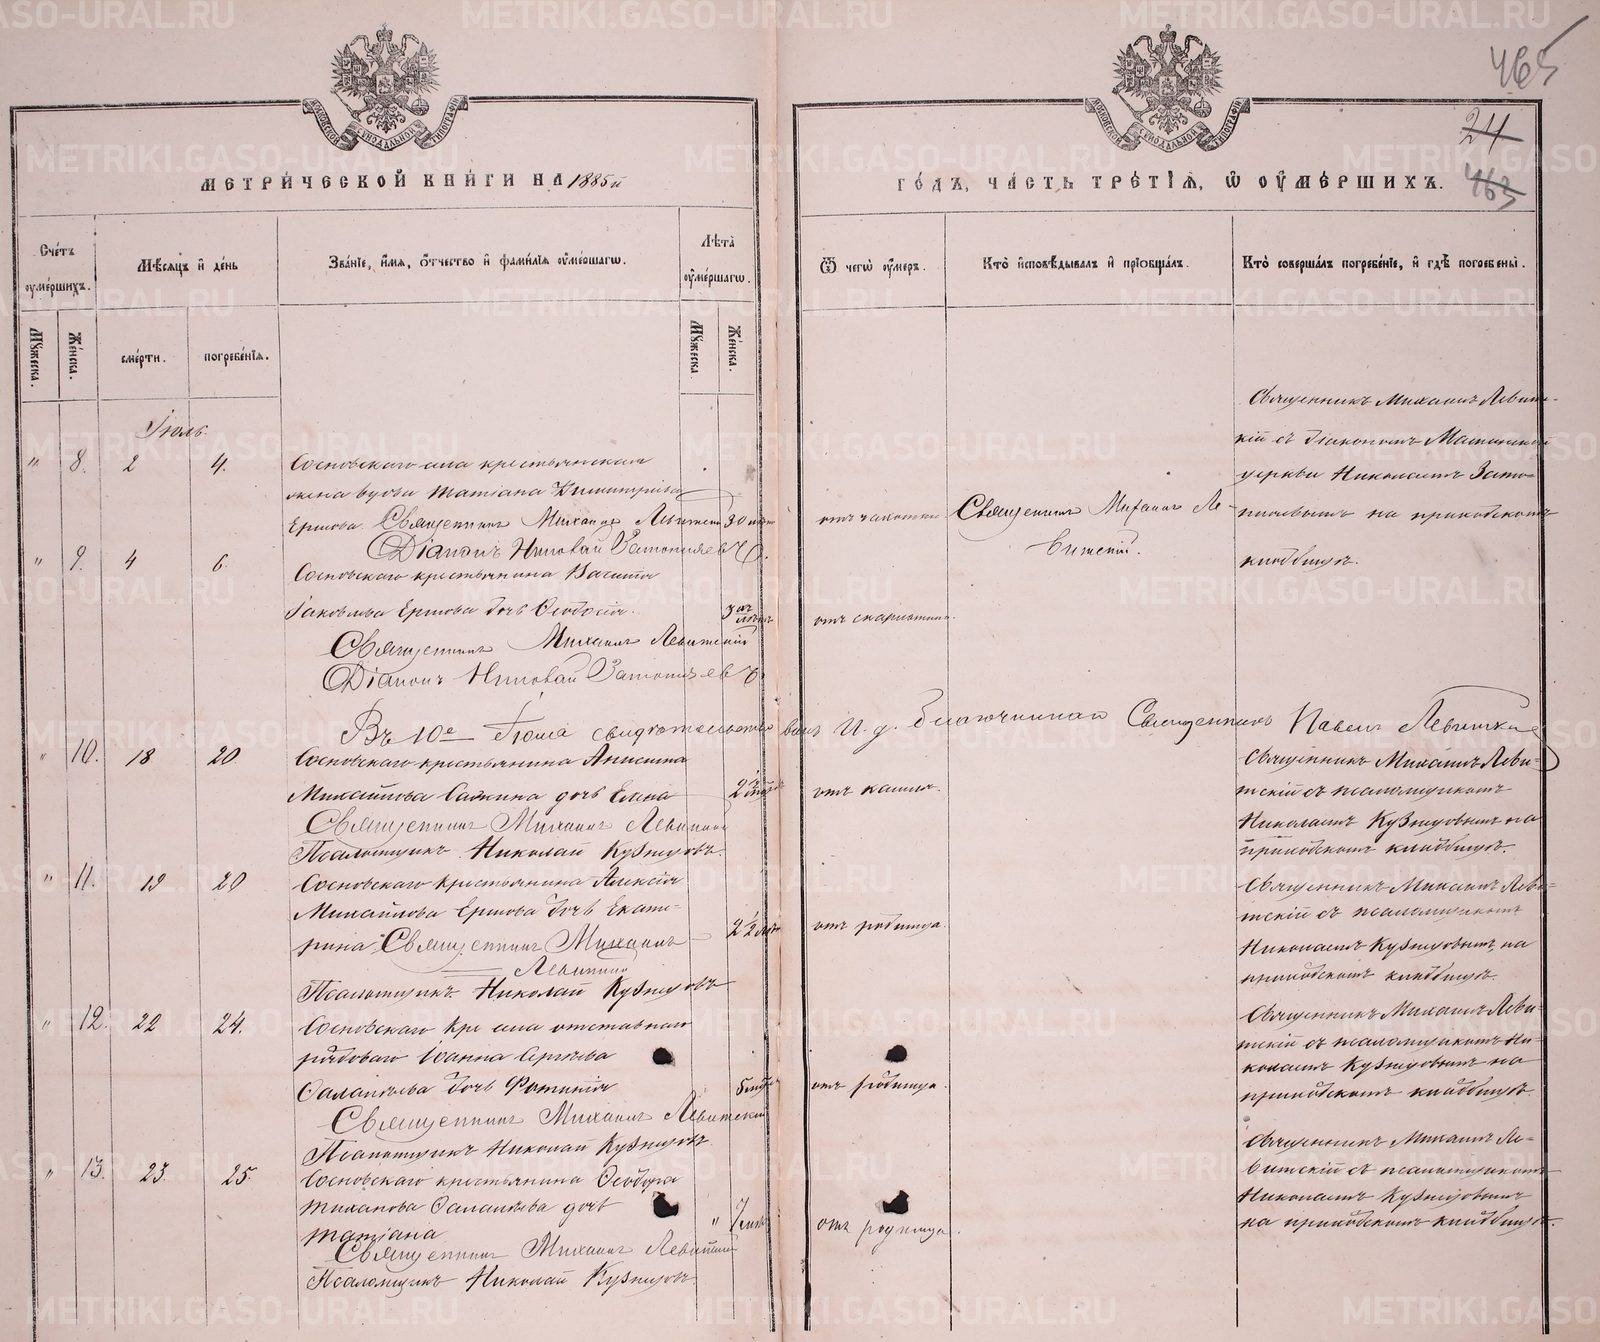 465
24
463
МОСКОВСКОЙ СУНОДАЛЬНОЙ ТИПОГРАФІИ
МОСКОВСКОЙ СУНОДАЛЬНОЙ ТИПОГРАФІИ
МЕТРИЧЕСКОЙ КНИГИ НА 1885й
ГОДЪ, ЧАСТЬ ТРЕТІЯ, Ѿ ОУМЕРШИХЪ.
Счетъ оумершихъ.
Мѣсяцъ и день
Званіе, имя, отчество и фамилія оумершагѡ.
Лѣта оумершагѡ.
Ѿ чегѡ оумеръ.
Кто исповѣдывалъ и пріобщалъ.
Кто совершалъ погребеніе, и гдѣ погребены.
Мужеска.
Женска.
смерти.
погребенія.
Мужеска.
Женска.
Іюль.
" 8. 2 4.
Сосновскаго села крестьянская
жена вдова Татіана Димитріева
Ершова Священникъ Михаилъ Левитскій 30 лѣтъ
Діаконъ Николай Затопляевъ
отъ чахотки
Священникъ Михаилъ Ле-
витскій.
Священникъ Михаилъ Левит-
скій съ діакономъ
церкви Николаемъ Зато-
пляевымъ на приходскомъ
кладбищѣ.
" 9. 4 6.
Сосновскаго крестьянина
Іаковлева Ершова дочь Ѳеодосія. 3
Священникъ Михаилъ Левитскій
Діаконъ Николай Затопляевъ
отъ скарлатины.
Въ 10е Іюля свидѣтельствовалъ И. д. благочиннаго Священникъ Павелъ Левитскій
" 10. 18 20
Сосновскаго крестьянина Анисима
Михайлова Сажина дочь Елена 2
Священникъ Михаилъ Левитскій
Псаломщикъ Николай Кузнецовъ.
отъ кашля.
Священникъ Михаилъ Леви-
тскій съ псаломщикомъ
Николаемъ Кузнецовымъ на
приходскомъ кладбищѣ.
" 11. 19 20
Сосновскаго крестьянина Алексія
Михайлова Ершова дочь Екате-
рина Священникъ Михаилъ 2½
Левитскій
Псаломщикъ Николай Кузнецовъ
отъ родимца.
Священникъ Михаилъ Леви-
тскій съ псаломщикомъ
Николаемъ Кузнецовымъ на
приходскомъ кладбищѣ.
" 12. 22 24.
Сосновскаго села отставнаго
рядоваго Іоанна Сергѣева
дочь Фотинія 5
Священникъ Михаилъ Левитскій
Псаломщикъ Николай Кузнецовъ
отъ родимца.
Священникъ Михаилъ Леви-
тскій съ псаломщикомъ Ни-
колаемъ Кузнецовымъ на
приходскомъ кладбищѣ.
" 13. 23 25.
Сосновскаго крестьянина Ѳеодора
дочь " 7
Татіана
Священникъ Михаилъ Левитскій
Псаломщикъ Николай Кузнецовъ.
отъ родимца.
Священникъ Михаилъ Ле-
витскій съ псаломщикомъ
Николаемъ Кузнецовымъ
на приходскомъ кладбищѣ.
METRIKI.GASO-URAL.RU